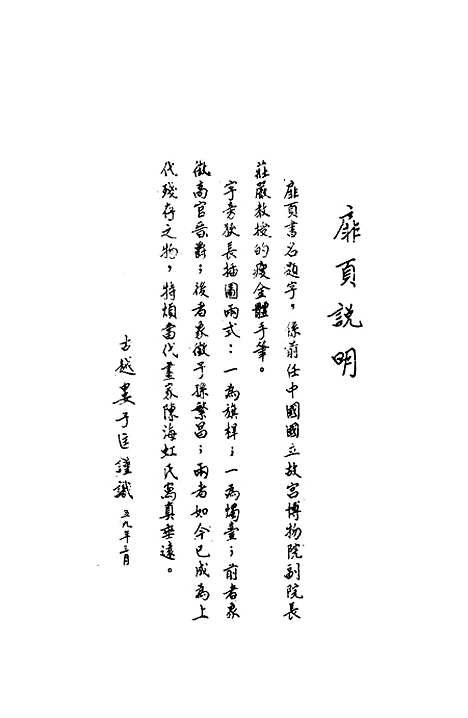 扉頁說明
扉頁書名題字，係前任中國國立故宮博物院副院長
莊嚴教授的瘦金體手筆。
字旁狹長插圖兩式：一為旗桿；一為燭臺；前者象
徵高官晉爵；後者象徵子孫繁昌；兩者如今已成為上
代殘存之物，特煩當代畫家陳海虹氏寫真垂遠。
古越婁子匡謹識 五九年二月